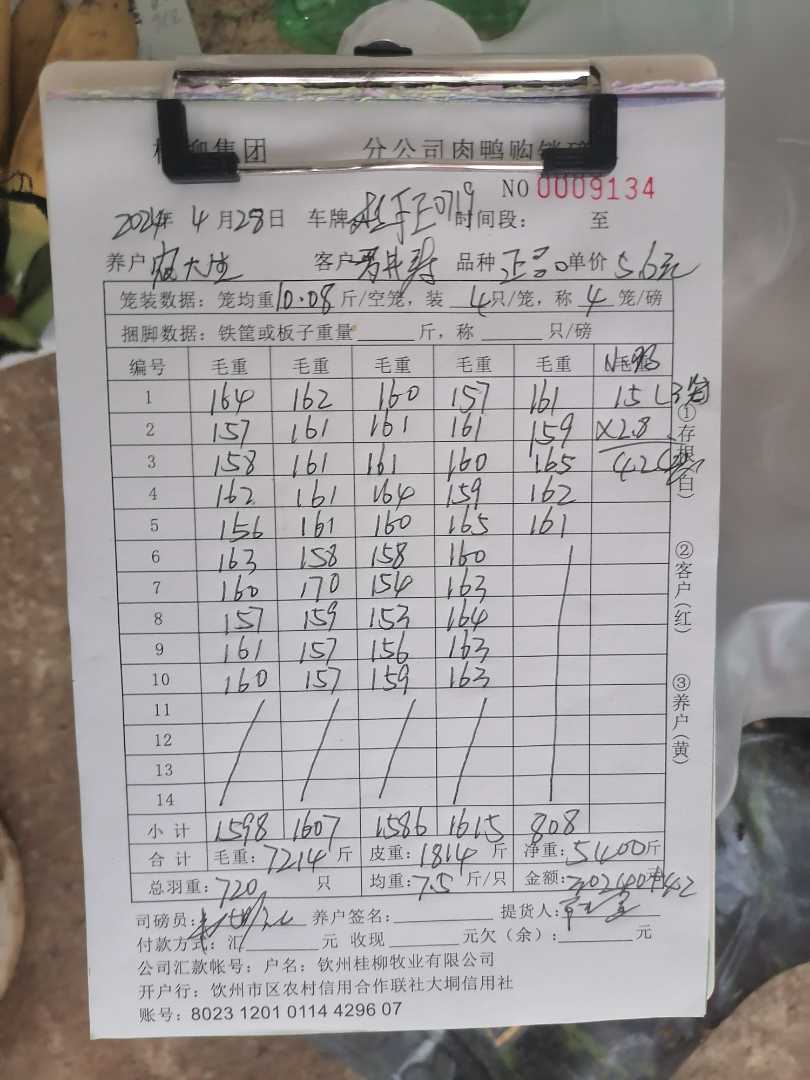 柳集团 分公司肉鸭购销
NO 0009134
2024年 4月28日 车牌 0719 时间段： 至
养户 客户 品种 正品 单价 5.6元
笼装数据：笼均重10.08斤/空笼，装 4只/笼，称 4 笼/磅
捆脚数据：铁筐或板子重量 斤，称 只/磅
编号 毛重 毛重 毛重 毛重 毛重 毛重
1 164 162 160 157 161 15
2 157 161 161 161 159 X2.8
3 158 161 161 160 165 42
4 162 161 164 159 162
5 156 161 160 165 161
6 163 158 158 160
7 160 170 154 163
8 157 159 153 164
9 161 157 156 163
10 160 157 159 163
11
12
13
14
小计 1598 1607 1586 1615 808
合计 毛重：7214斤 皮重：1814 斤 净重：5400斤
总羽重：720 只 均重：7.5 斤/只 金额：30240 +42
司磅员： 养户签名： 提货人：
付款方式：汇 元 收现 元欠（余）： 元
公司汇款帐号：户名：钦州桂柳牧业有限公司
开户行：钦州市区农村信用合作联社大垌信用社
账号：8023 1201 0114 4296 07
①存根（白）
②客户（红）
③养户（黄）